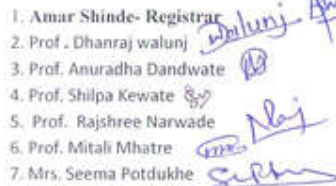 1. Amar Shinde- Registrar
2. Prof . Dhanraj walunj walunj
3. Prof. Anuradha Dandwate
4. Prof. Shilpa Kewate
5. Prof. Rajshree Narwade
6. Prof. Mitali Mhatre
7. Mrs. Seema Potdukhe